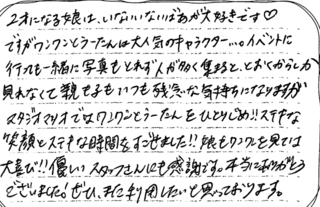 2才になる娘は、いないいないばあが大好きです♡
ですがワンワンとうーたんは大人気のキャラクター…。イベントに
行っても一緒に写真もとれず人が多く集まると、とおくからしか
見れなくて親も子もいつも残念な気持ちになりますが
スタジオマリオではワンワンとうーたんをひとりじめ!!ステキな
笑顔とステキな時間をすごせました!!娘もワンワンを見ては
大喜び!!優しいスタッフさんにも感謝です。本当にありがとう
ございました!ぜひ、また利用したいと思っております。